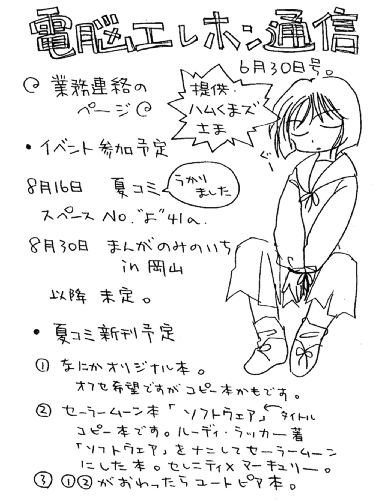 電脳エレホン通信
6月30日号。
業務連絡の
ページ
提供・
ハムくまズ
さま
・イベント参加予定
8月16日 夏コミ
うかり
ました
スペース No.“よ”41a.
8月30日 まんがのみのいち
in 岡山
以降 未定。
ぐー
・夏コミ新刊予定
① なにかオリジナル本。
オフセ希望ですがコピー本かもです。
② セーラームーン本「ソフトウェア」←タイトル
コピー本です。ルーディ・ラッカー著
「ソフトウェア」をナニしてセーラームーン
にした本。セレニティ×マーキュリー。
③ ①②がおわったらユートピア本。